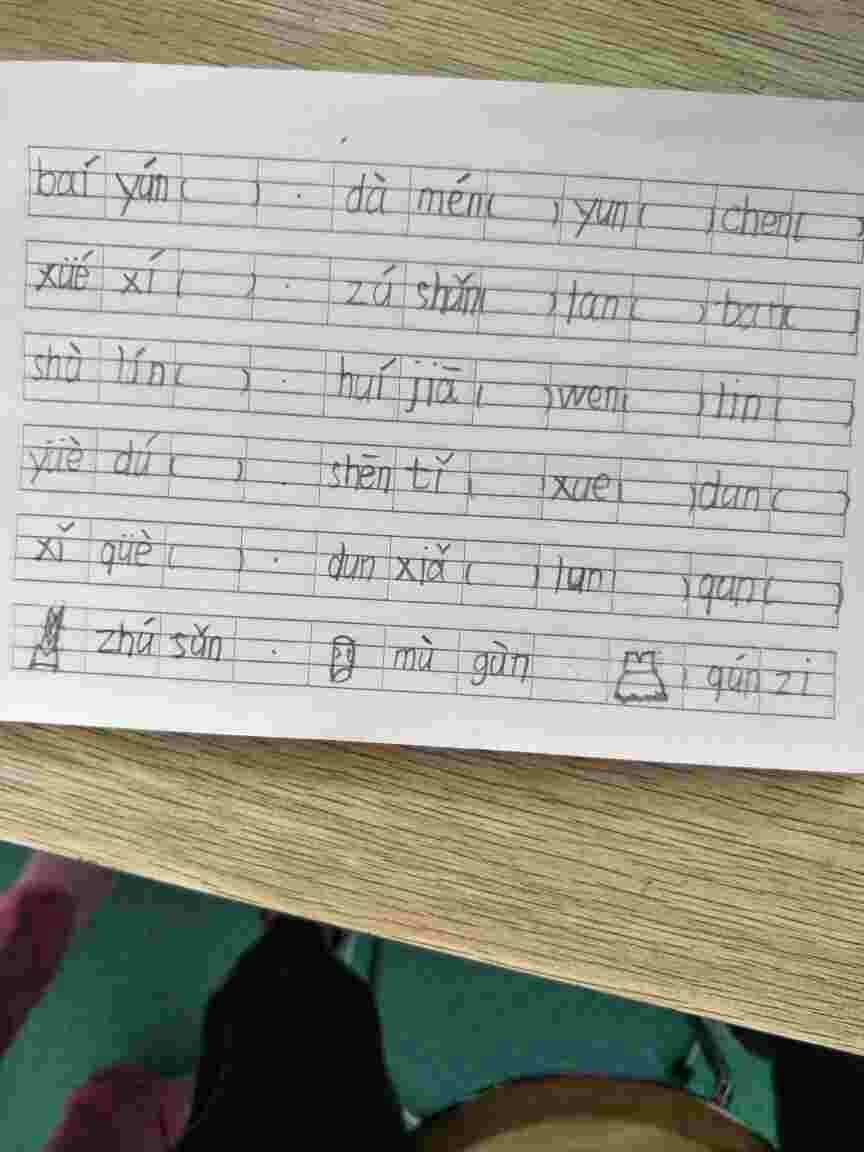 baí yún ( ) . dà mén ( ) yun ( ) chen ( )
xüé xí ( ) . zú shǎn ( ) tan ( ) ban ( )
shù lín ( ) . huí jiā ( ) wen ( ) lin ( )
yüè dú ( ) . shēn tǐ ( ) xue ( ) dun ( )
xǐ qüè ( ) . dun xiǎ ( ) lun ( ) qun ( )
zhú sǔn . mù gùn qún zi